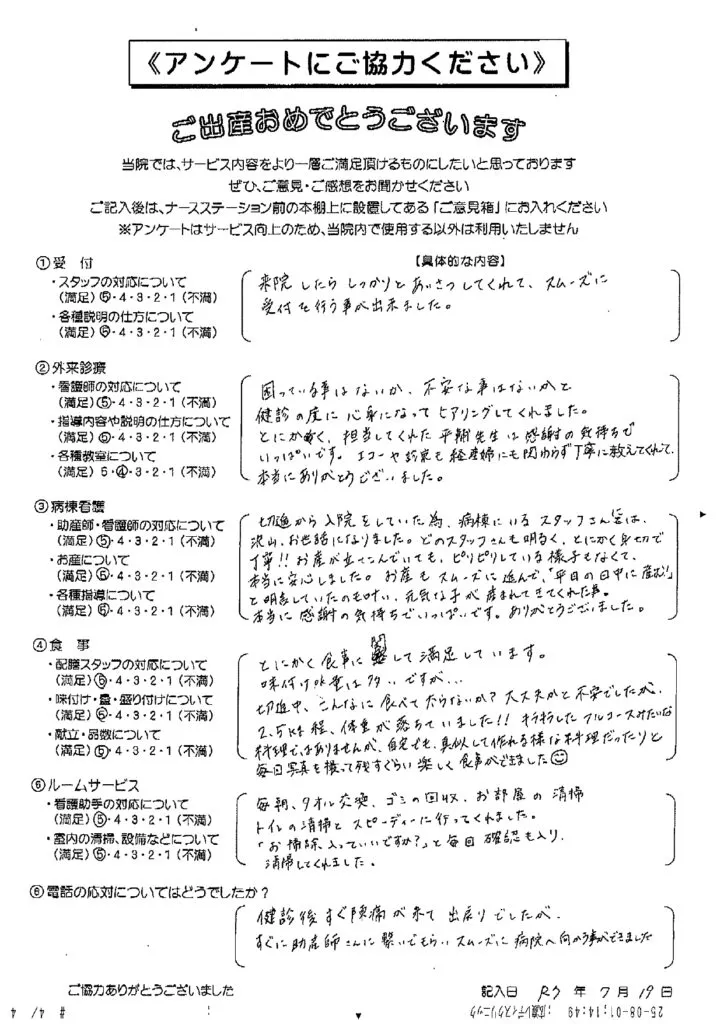 《アンケートにご協力ください》
ご出産おめでとうございます
当院では、サービス内容をより一層ご満足頂けるものにしたいと思っております
ぜひ、ご意見・ご感想をお聞かせください
ご記入後は、ナースステーション前の本棚上に設置してある「ご意見箱」にお入れください
※アンケートはサービス向上のため、当院内で使用する以外は利用いたしません
①受 付
【具体的な内容】
・スタッフの対応について
(満足) ⑤・4・3・2・1 (不満)
・各種説明の仕方について
(満足) ⑤・4・3・2・1 (不満)
来院したらしっかりとあいさつしてくれて、スムーズに
受付を行う事が出来ました。
②外来診療
・看護師の対応について
(満足) ⑤・4・3・2・1 (不満)
・指導内容や説明の仕方について
(満足) ⑤・4・3・2・1 (不満)
・各種教室について
(満足) 5・④・3・2・1 (不満)
困っている事はないか、不安な事はないかと
健診の度に心身になってヒアリングしてくれました。
とにかく、担当してくれた 先生は感謝の気持ちで
いっぱいです。エコーや診察も経産婦にも関わらず丁寧に教えてくれて、
本当にありがとうございました。
③病棟看護
・助産師・看護師の対応について
(満足) ⑤・4・3・2・1 (不満)
・お産について
(満足) ⑤・4・3・2・1 (不満)
・各種指導について
(満足) ⑤・4・3・2・1 (不満)
切迫から入院をしていた為、病棟にいるスタッフさん には、
沢山お世話になりました。どのスタッフさんも明るく、とにかく
丁寧!!お産が立てこんでいても、ピリピリしている様子もなくて、
本当に安心しました。お産もスムーズに進んで、「平日の日中に産む!」
と明言していたのも叶い、元気な子が産まれてきてくれた事。
本当に感謝の気持ちでいっぱいです。ありがとうございました。
④食 事
・配膳スタッフの対応について
(満足) ⑤・4・3・2・1 (不満)
・味付け・量・盛り付けについて
(満足) ⑤・4・3・2・1 (不満)
・献立・品数について
(満足) ⑤・4・3・2・1 (不満)
とにかく食事に関して満足しています。
味付け 量は多いですが...
切迫中、こんなに食べて 太らないか?大丈夫かと不安でしたが、
2.5kg 程、体重が落ちていました!!キラキラしたフルコースみたいな
料理ではありませんが、自宅でも真似して作れる様な料理だったりと
毎日写真を撮って残すぐらい楽しく食事ができました☺
⑤ルームサービス
・看護助手の対応について
(満足) ⑤・4・3・2・1 (不満)
・室内の清掃、設備などについて
(満足) ⑤・4・3・2・1 (不満)
毎朝、タオル交換、ゴミの回収、お部屋の清掃
トイレの清掃とスピーディーに行ってくれました。
「お掃除入っていいですか?」と毎回確認も入り、
清掃してくれました。
⑥電話の応対についてはどうでしたか?
健診後すぐ陣痛が来て出戻りでしたが、
すぐに助産師さんに繋いでもらいスムーズに病院へ向かう事ができました
ご協力ありがとうございました
記入日 R7 年 7 月 19 日
25-08-01;14:49 ;広瀬レディスクリニック
# 4/ 4